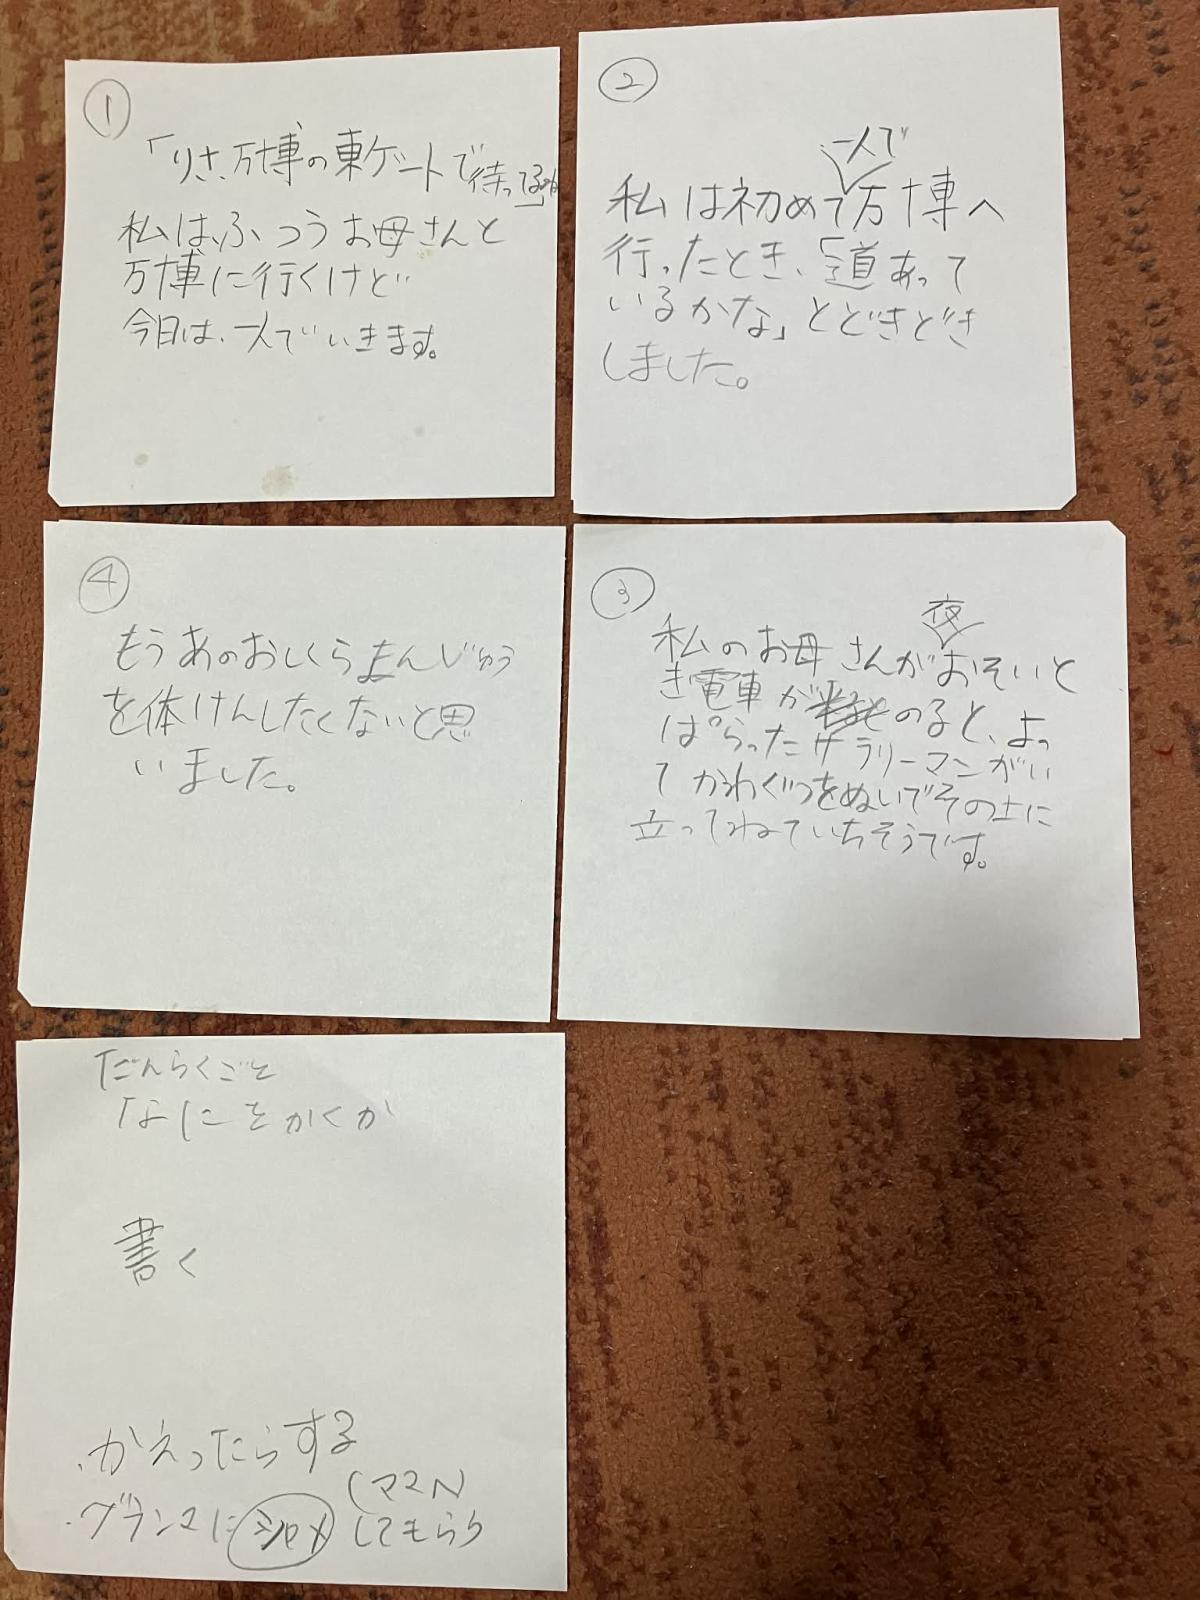 ①
「りさ、万博の東ゲートで待ってるね」
私は、ふつうお母さんと
万博に行くけど
今日は、一人でいきます。
②
一人で
私は初めて万博へ
行ったとき、「道あって
いるかな」とどきどき
しました。
③
夜
私のお母さんがおそいと
き電車がのると、よっ
ぱらったサラリーマンがい
てかわぐつをぬいでその上に
立ってねていちそうです。
④
もうあのおしくらまんじゅう
を体けんしたくないと思
いました。
だんらくごと
なにをかくか
書く
・かえったらする
(ママN)
・グランマにしてもらう